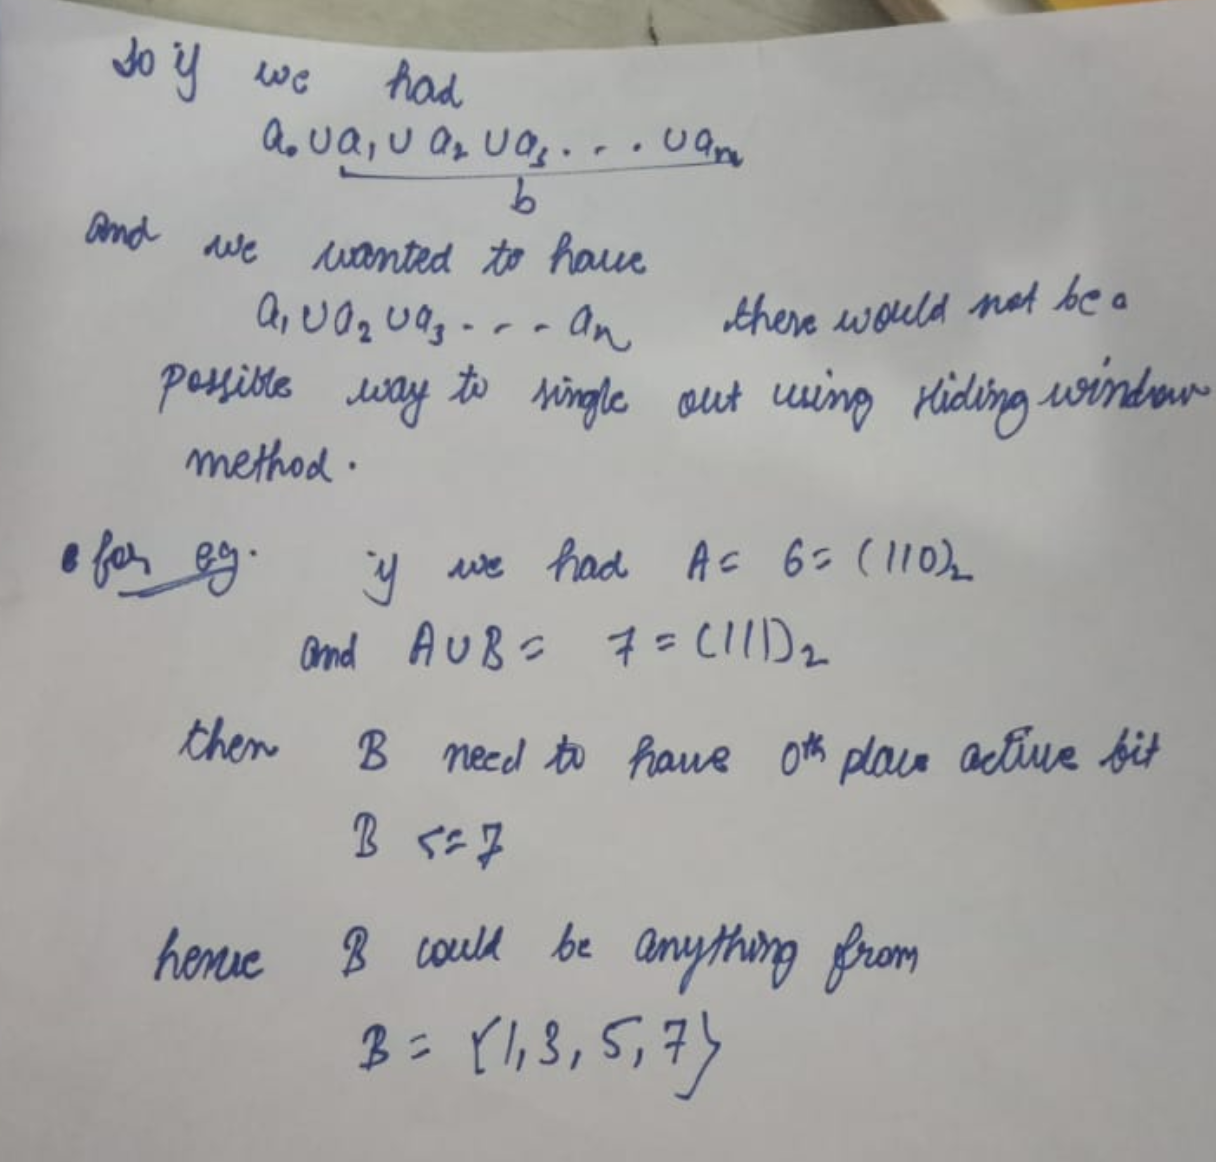 So if we had
a₀ ∪ a₁ ∪ a₂ ∪ a₃ . . . . ∪ aₙ
b
and we wanted to have
a₁ ∪ a₂ ∪ a₃ - - - aₙ there would not be a
possible way to single out using sliding window
method.
• for eg. if we had A = 6 = (110)₂
and A ∪ B = 7 = (111)₂
then B need to have 0th place active bit
B <= 7
hence B could be anything from
B = {1, 3, 5, 7}